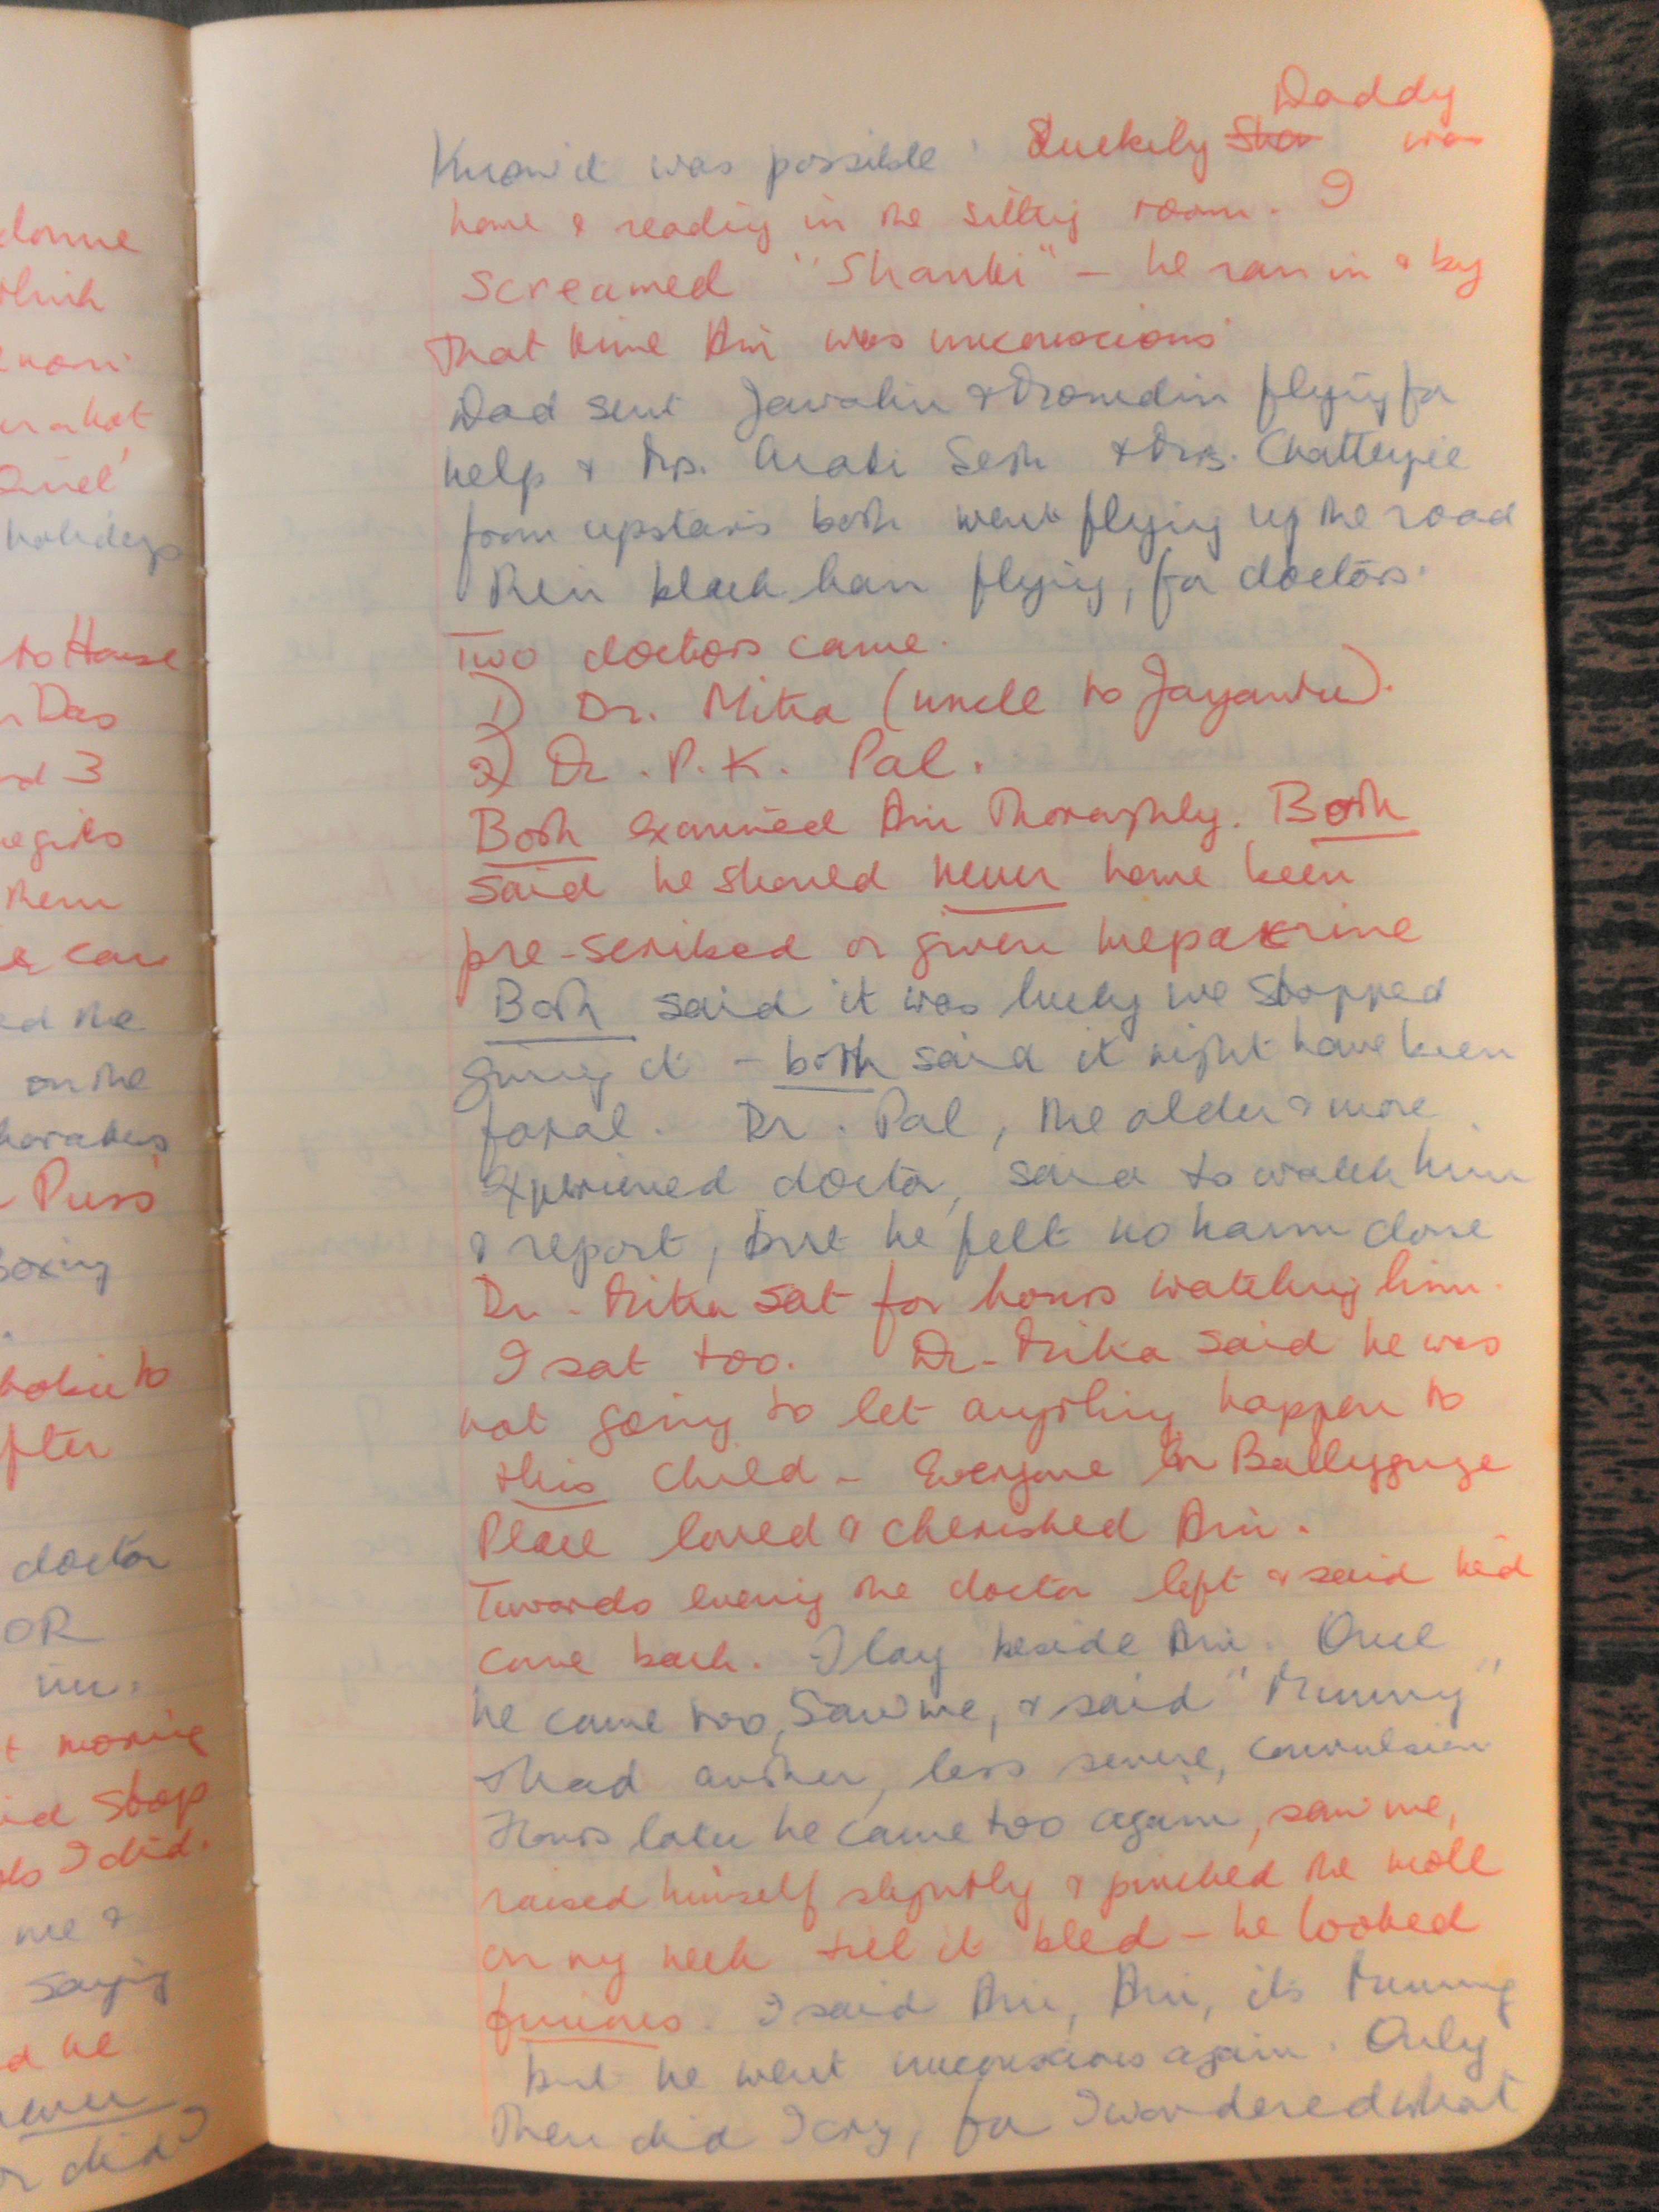 donne
which
hot
holidays
to House
Das
3
Them
car
ed the
on the
Puss
Boxing
to
fter
doctor
OR
im.
moving
id Stop
I did.
me &
saying
d he
never
or did I
Daddy
Know it was possible. Luckily Sha was
home & reading in the sitting room. I
screamed "Shanti" – he ran in & by
that time Ani was unconscious
Dad sent Jawalin & flying for
help & Mrs. Arati Sesh & Mrs. Chatterjee
from upstairs both went flying up the road
Their black hair flying, for doctors.
Two doctors came.
1) Dr. Mitra (uncle to Jayanta).
2) Dr. P.K. Pal.
Both examined Ani Thoroughly. Both
said he should never have been
pre-scribed or given mepakrine
Both said it was lucky we stopped
giving it – both said it might have been
fatal. Dr. Pal, the older & more
experienced doctor, said to watch him
& report, but he felt no harm done
Dr. Mitra sat for hours watching him.
I sat too. Dr. Mitra said he was
not going to let anything happen to
this child – Everyone in Ballygunge
Place loved & cherished Ani.
Towards evening the doctor left & said he'd
come back. I lay beside Ani. Once
he came too, saw me, & said "Mummy"
& had another, less severe, convulsion
Hours later he came too again, saw me,
raised himself slightly & pinched the mole
on my neck till it bled – he looked
furious. I said Ani, Ani, its Mummy
but he went unconscious again. Only
Then did I cry, for I wondered what